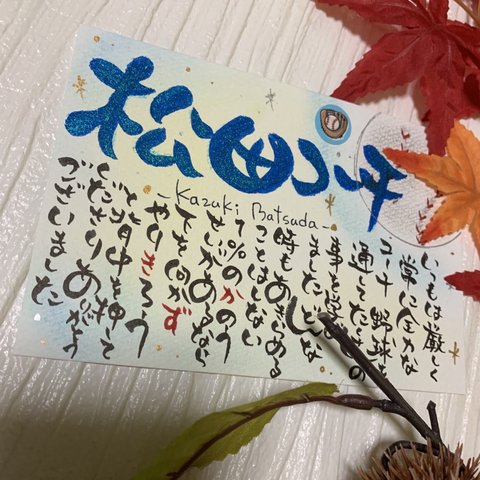 松田コーチ
-Kazuki Batsuda-
いつもは厳しく
常に全力な
コーチ 野球を
通してたくさんの
事を学び
ました どんな
時もあきらめる
ことはしない
1%のかのう
せいがあるなら
下を向かず
やりきろう
と背中を押して
くださりありがとう
ございました